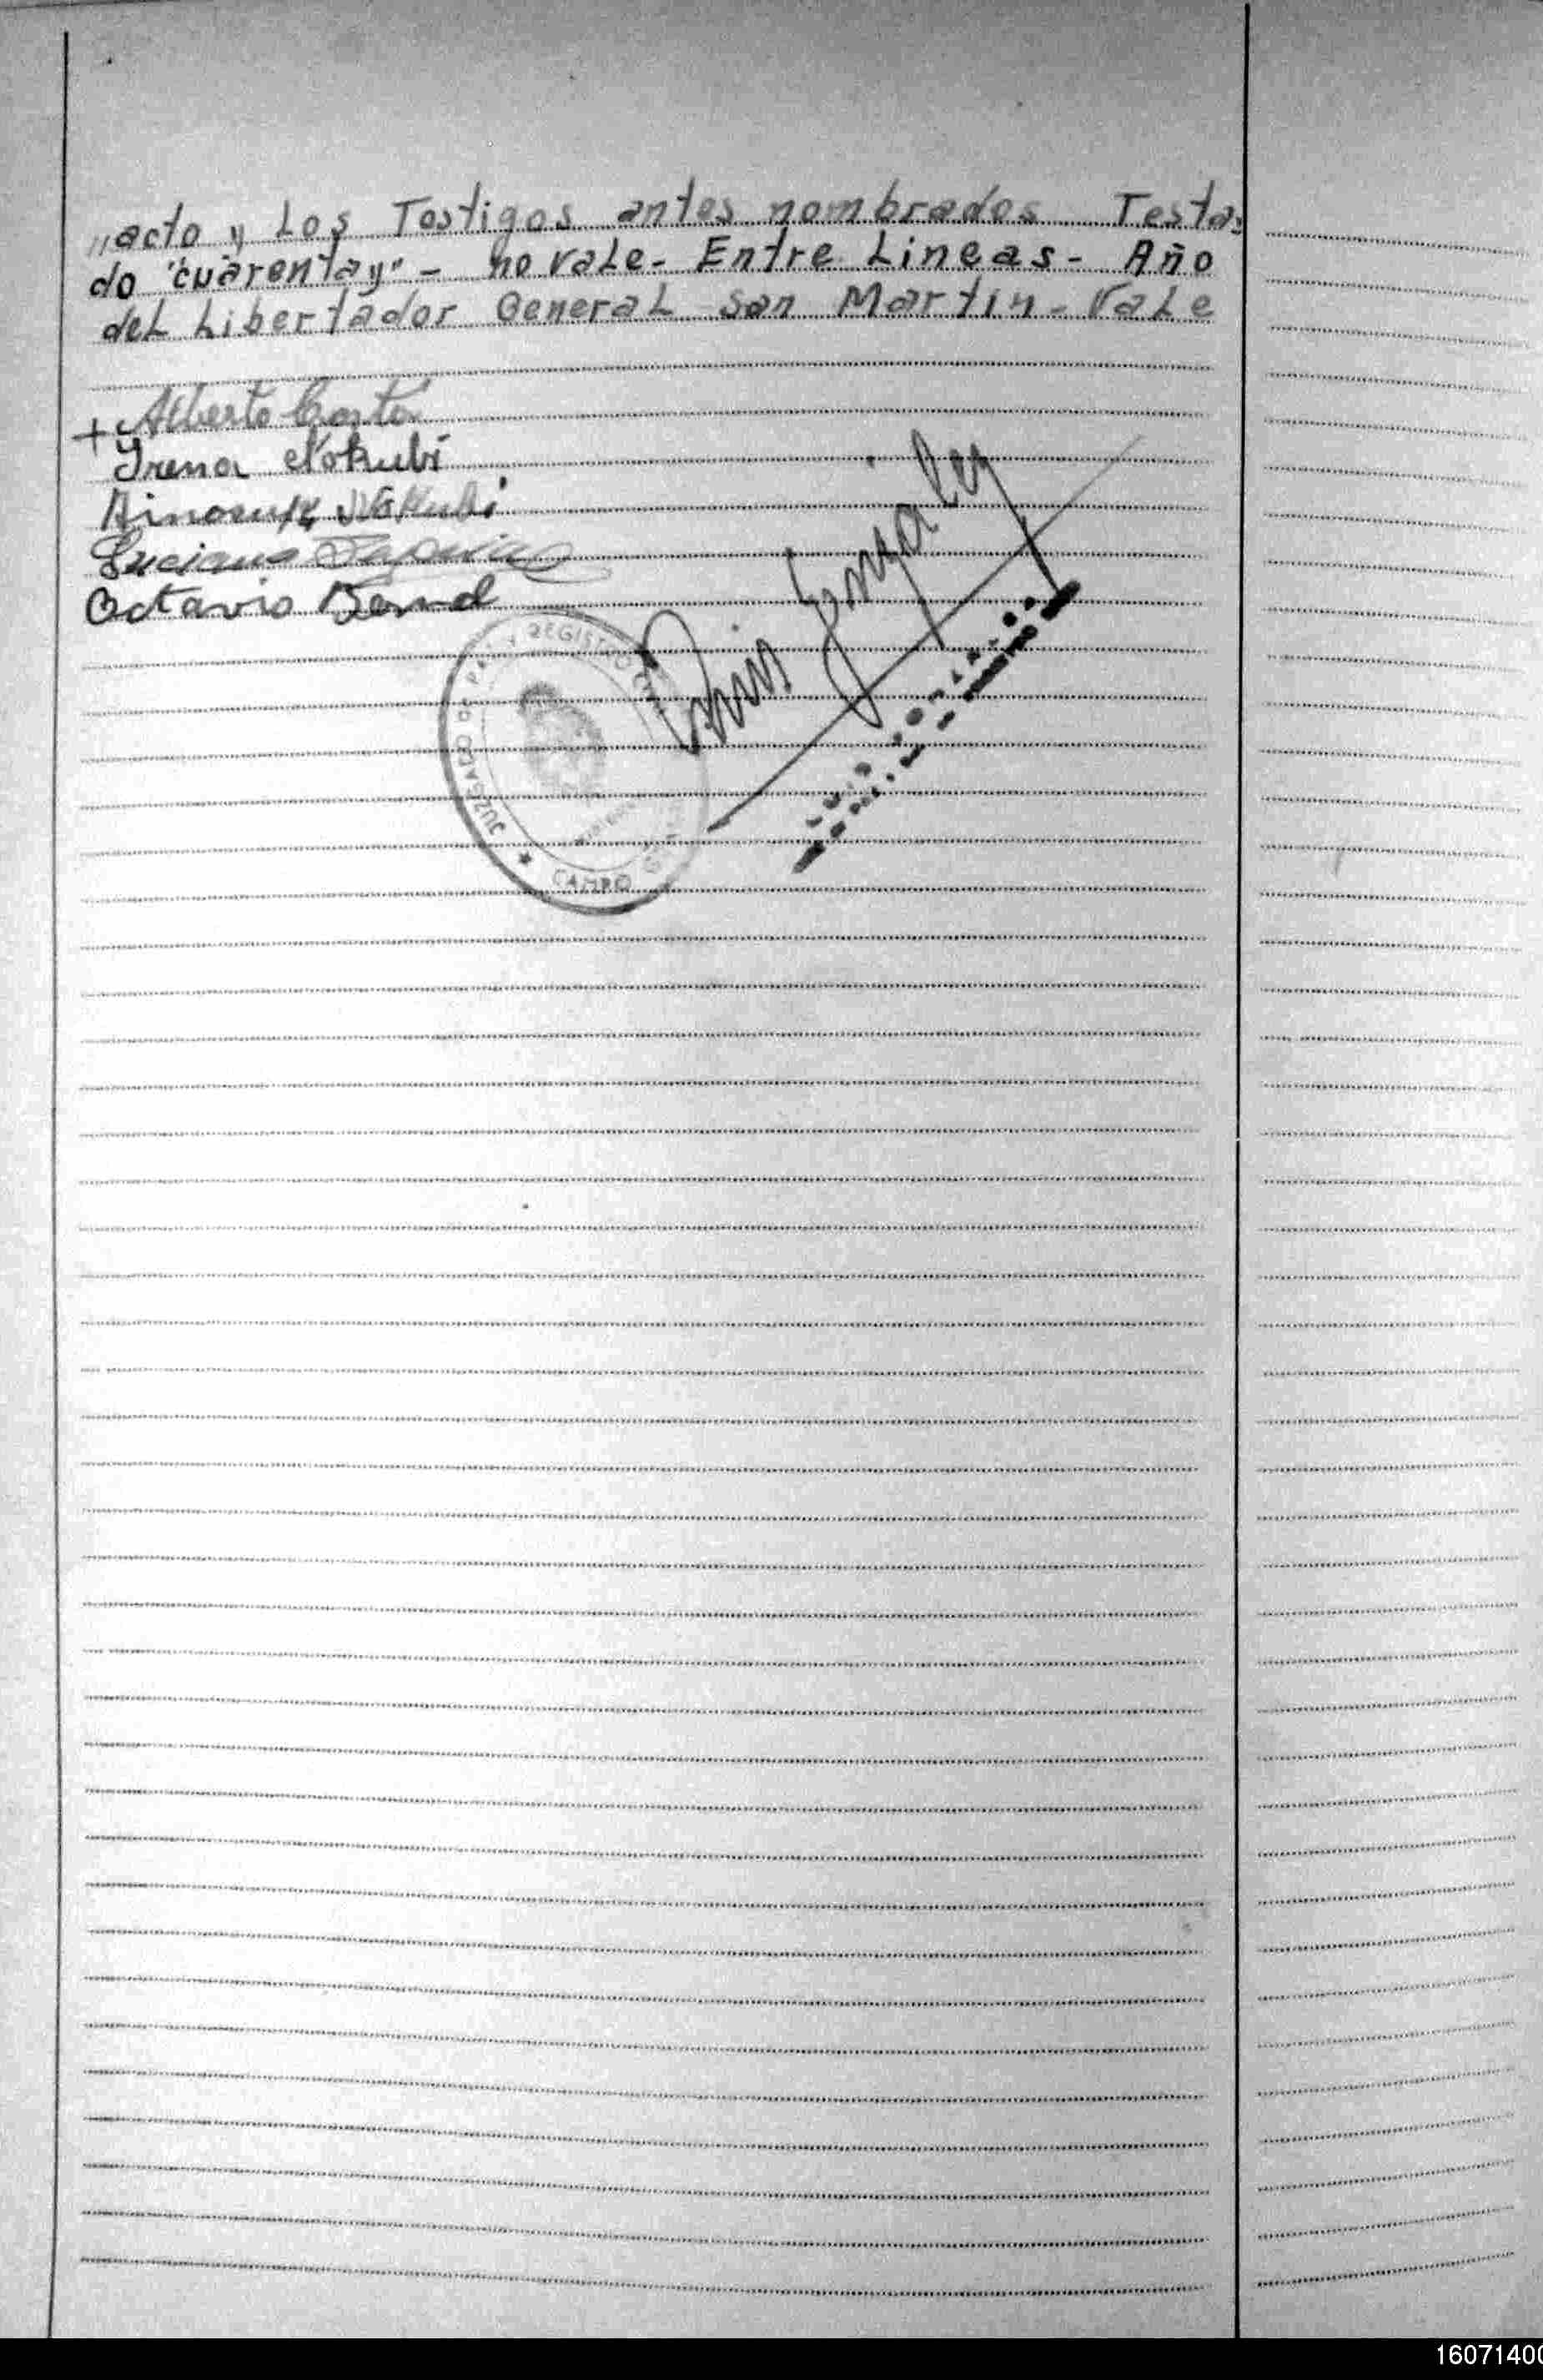 „acto y Los Testigos antes nombrados Testa„
do "cuarenta y" - no vale - Entre Lineas - Año
del Libertador General San Martin - Vale
+ Alberto
Irena Nokubi
Luciano
Octavio
Luis Gonzalez
JUZGADO DE PAZ Y REGISTRO
CAMPO
16071400